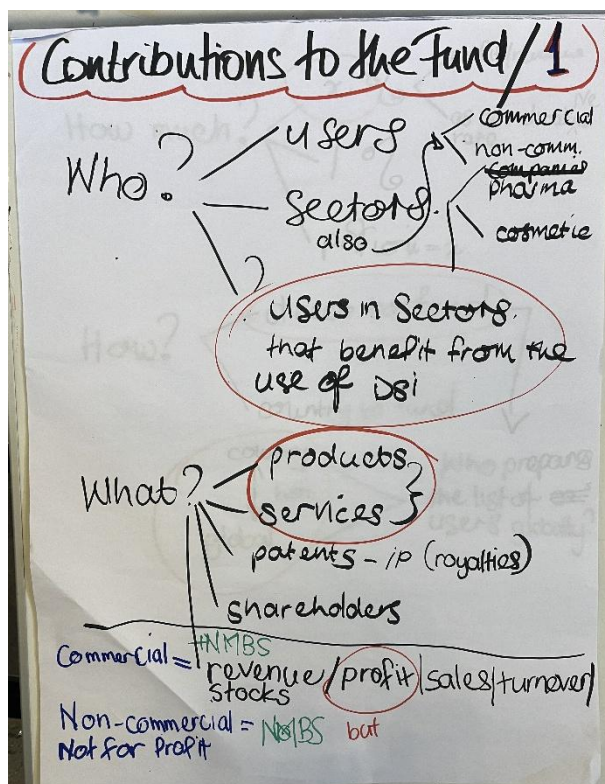 Contributions to the Fund/1
Who?
users
commercial
non-comm.
sectors.
also
companies
pharma
cosmetic
?
users in sectors.
that benefit from the
use of DSI
What?
products
services
patents - ip (royalties)
shareholders
Commercial =
+NMBS
revenue/profit/sales/turnover/
stocks
Non-commercial = NMBS but
Not for Profit